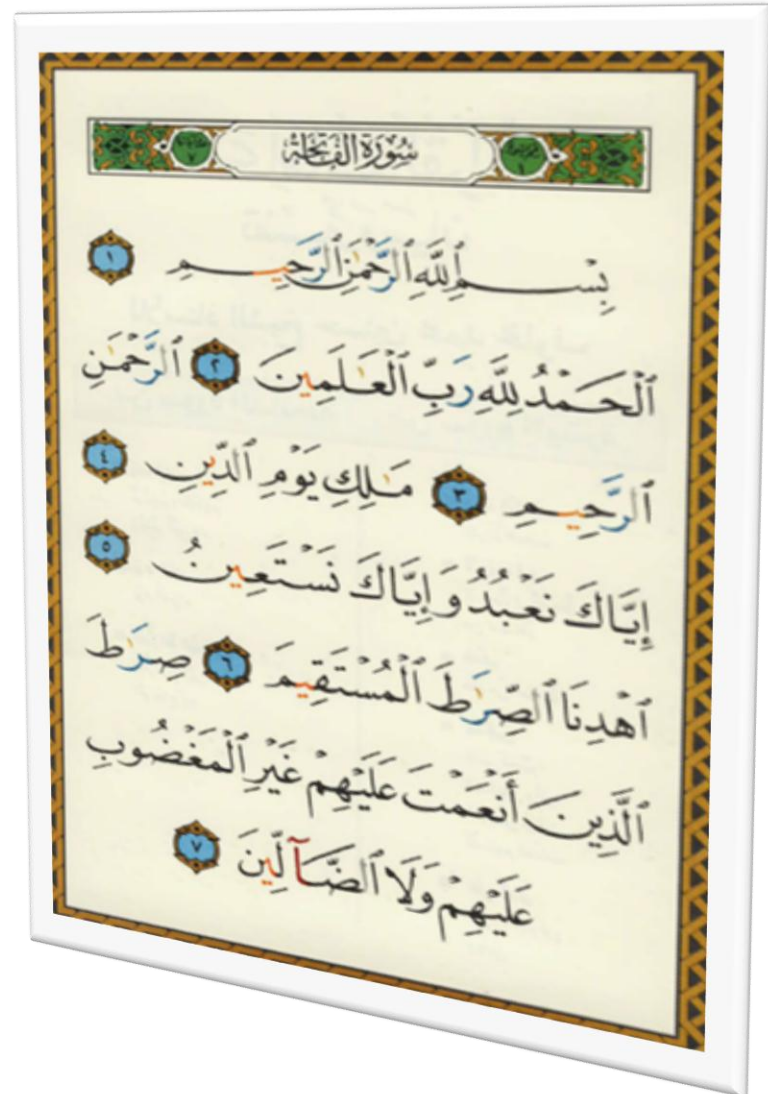 سُورَةُ الفَاتِحَةِ
بِسْمِ ٱللَّهِ ٱلرَّحْمَٰنِ ٱلرَّحِيمِ ١
ٱلْحَمْدُ لِلَّهِ رَبِّ ٱلْعَـٰلَمِينَ ٢ ٱلرَّحْمَٰنِ
ٱلرَّحِيمِ ٣ مَـٰلِكِ يَوْمِ ٱلدِّينِ ٤
إِيَّاكَ نَعْبُدُ وَإِيَّاكَ نَسْتَعِينُ ٥
ٱهْدِنَا ٱلصِّرَٰطَ ٱلْمُسْتَقِيمَ ٦ صِرَٰطَ
ٱلَّذِينَ أَنْعَمْتَ عَلَيْهِمْ غَيْرِ ٱلْمَغْضُوبِ
عَلَيْهِمْ وَلَا ٱلضَّآلِّينَ ٧